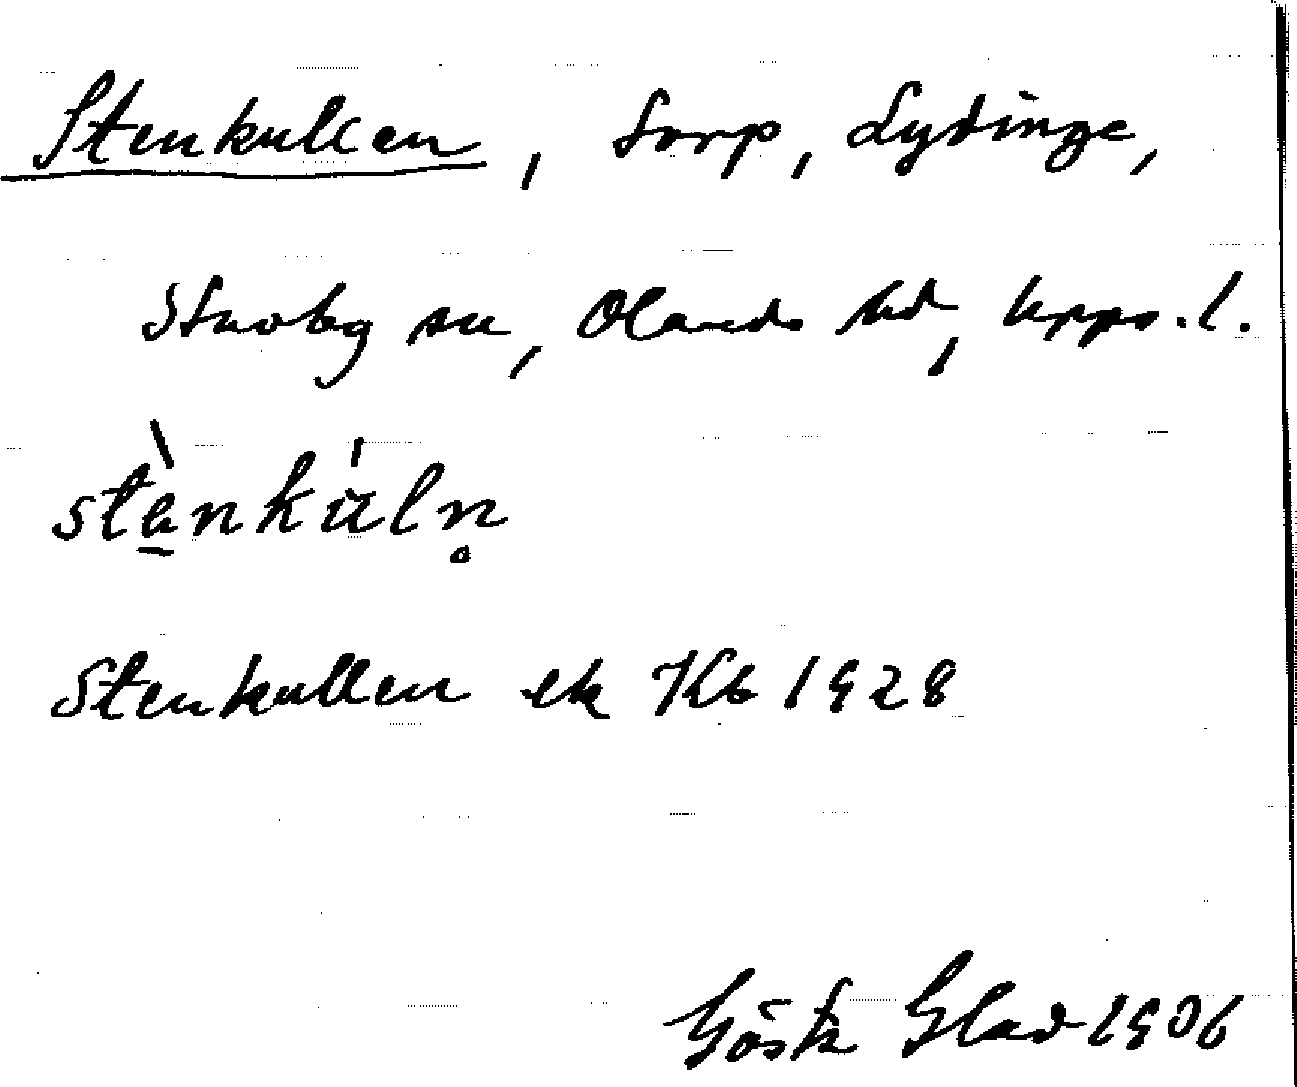 Stenkullen, torp, Lydinge,
Stavby sn, Olands hd, Upps. l.
stènku̍ln̥
Stenkullen ek Kb 1928
Gösta Glad 1906